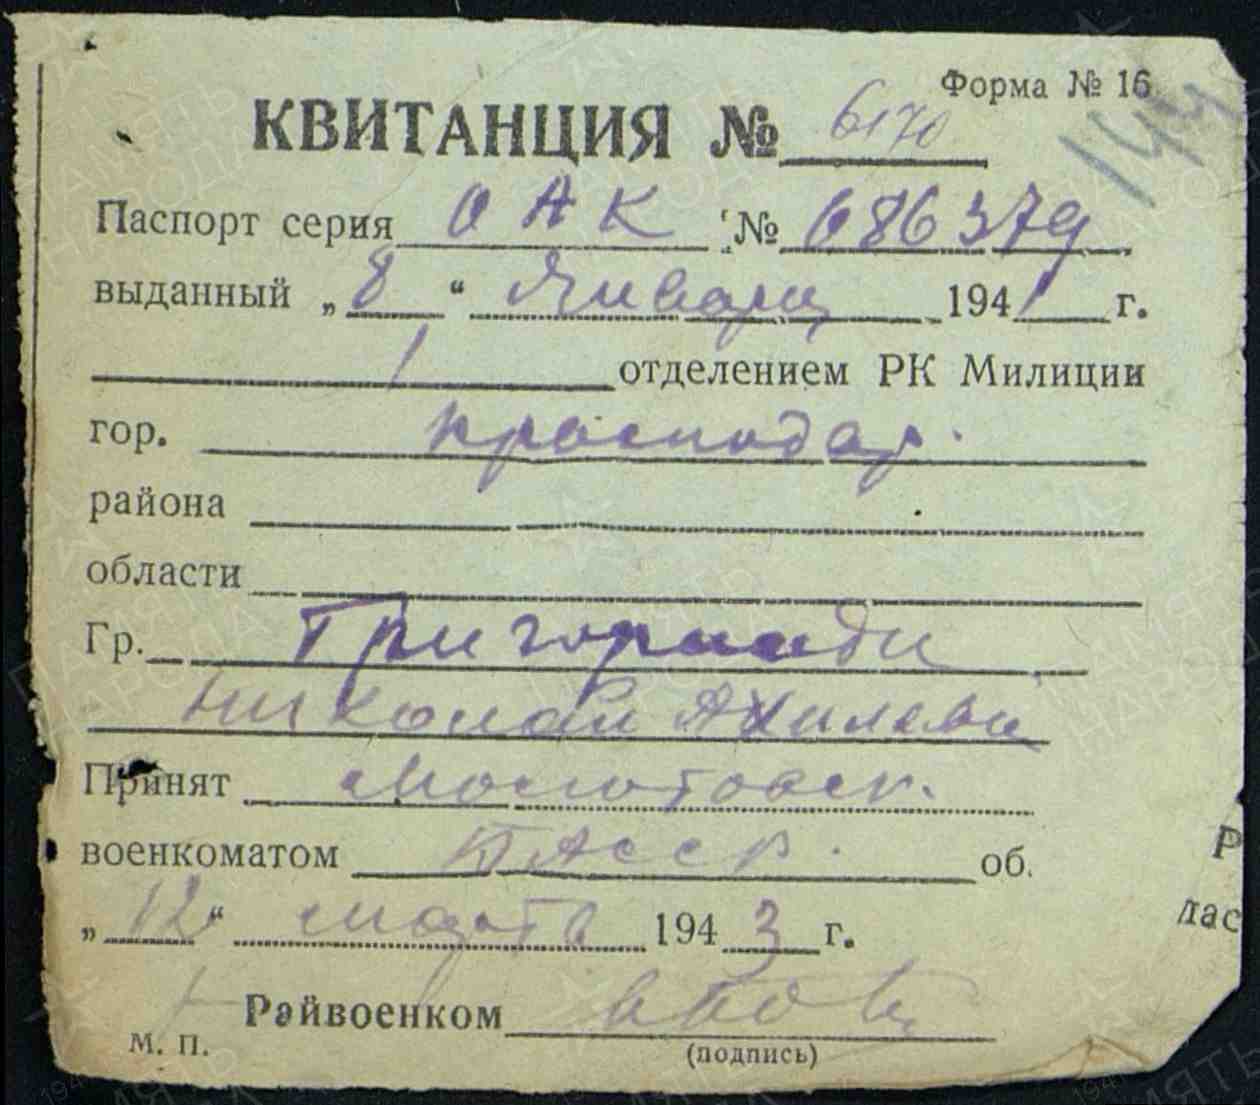 Форма № 16
144
КВИТАНЦИЯ № 6170
Паспорт серия ОАК № 686379
выданный „8“ Января 1941 г.
1 отделением РК Милиции
гор. Краснодар.
района
области
Гр. Григориади
Николай Ахилеви
Принят Молотовск.
военкоматом об.
„12“ марта 1943 г.
Райвоенком
М. П. (подпись)